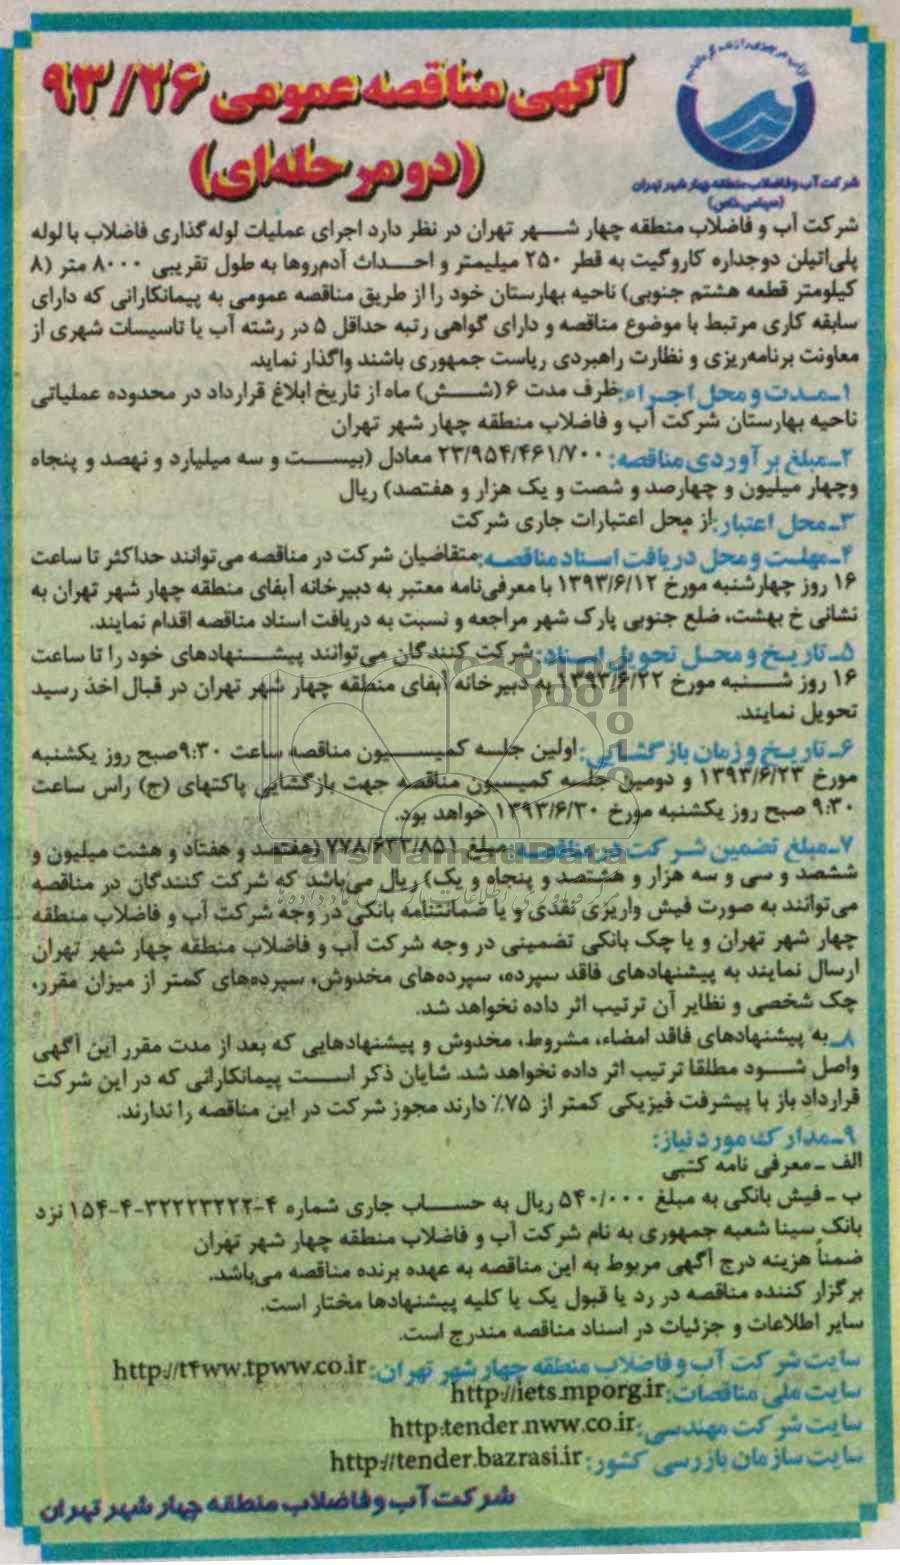 آگهی مناقصه عمومی ۹۳/۲۶
(دو مرحله‌ای)
شرکت آب و فاضلاب منطقه چهار شهر تهران
(سهامی خاص)
شرکت آب و فاضلاب منطقه چهار شهر تهران در نظر دارد اجرای عملیات لوله گذاری فاضلاب با لوله
پلی‌اتیلن دوجداره کاروگیت به قطر ۲۵۰ میلیمتر و احداث آدم‌روها به طول تقریبی ۸۰۰۰ متر (۸
کیلومتر قطعه هشتم جنوبی) ناحیه بهارستان خود را از طریق مناقصه عمومی به پیمانکارانی که دارای
سابقه کاری مرتبط با موضوع مناقصه و دارای گواهی رتبه حداقل ۵ در رشته آب یا تاسیسات شهری از
معاونت برنامه‌ریزی و نظارت راهبردی ریاست جمهوری باشند واگذار نماید.
۱ـ مدت و محل اجراء: ظرف مدت ۶ (شش) ماه از تاریخ ابلاغ قرارداد در محدوده عملیاتی
ناحیه بهارستان شرکت آب و فاضلاب منطقه چهار شهر تهران
۲ـ مبلغ برآوردی مناقصه: ۲۳/۹۵۴/۴۶۱/۷۰۰ معادل (بیست و سه میلیارد و نهصد و پنجاه
وچهار میلیون و چهارصد و شصت و یک هزار و هفتصد) ریال
۳ـ محل اعتبار: از محل اعتبارات جاری شرکت
۴ـ مهلت و محل دریافت اسناد مناقصه: متقاضیان شرکت در مناقصه می‌توانند حداکثر تا ساعت
۱۶ روز چهارشنبه مورخ ۱۳۹۳/۶/۱۲ با معرفی‌نامه معتبر به دبیرخانه آبفای منطقه چهار شهر تهران به
نشانی خ بهشت، ضلع جنوبی پارک شهر مراجعه و نسبت به دریافت اسناد مناقصه اقدام نمایند.
۵ـ تاریخ و محل تحویل اسناد: شرکت کنندگان می‌توانند پیشنهادهای خود را تا ساعت
۱۶ روز شنبه مورخ ۱۳۹۳/۶/۲۲ به دبیرخانه آبفای منطقه چهار شهر تهران در قبال اخذ رسید
تحویل نمایند.
۶ـ تاریخ و زمان بازگشایی: اولین جلسه کمیسیون مناقصه ساعت ۹:۳۰ صبح روز یکشنبه
مورخ ۱۳۹۳/۶/۲۳ و دومین جلسه کمیسیون مناقصه جهت بازگشایی پاکتهای (ج) راس ساعت
۹:۳۰ صبح روز یکشنبه مورخ ۱۳۹۳/۶/۳۰ خواهد بود.
۷ـ مبلغ تضمین شرکت در مناقصه: مبلغ ۷۷۸/۶۳۳/۸۵۱ (هفتصد و هفتاد و هشت میلیون و
ششصد و سی و سه هزار و هشتصد و پنجاه و یک) ریال می‌باشد که شرکت کنندگان در مناقصه
می‌توانند به صورت فیش واریزی نقدی و یا ضمانتنامه بانکی در وجه شرکت آب و فاضلاب منطقه
چهار شهر تهران و یا چک بانکی تضمینی در وجه شرکت آب و فاضلاب منطقه چهار شهر تهران
ارسال نمایند به پیشنهادهای فاقد سپرده، سپرده‌های مخدوش، سپرده‌های کمتر از میزان مقرر،
چک شخصی و نظایر آن ترتیب اثر داده نخواهد شد.
۸ـ به پیشنهادهای فاقد امضاء، مشروط، مخدوش و پیشنهادهایی که بعد از مدت مقرر این آگهی
واصل شود مطلقا ترتیب اثر داده نخواهد شد. شایان ذکر است پیمانکارانی که در این شرکت
قرارداد باز با پیشرفت فیزیکی کمتر از ۷۵٪ دارند مجوز شرکت در این مناقصه را ندارند.
۹ـ مدارک مورد نیاز:
الف ـ معرفی نامه کتبی
ب ـ فیش بانکی به مبلغ ۵۴۰/۰۰۰ ریال به حساب جاری شماره ۴-۳۲۲۲۳۲۲۲-۴-۱۵۴ نزد
بانک سینا شعبه جمهوری به نام شرکت آب و فاضلاب منطقه چهار شهر تهران
ضمناً هزینه درج آگهی مربوط به این مناقصه به عهده برنده مناقصه می‌باشد.
برگزار کننده مناقصه در رد یا قبول یک یا کلیه پیشنهادها مختار است.
سایر اطلاعات و جزئیات در اسناد مناقصه مندرج است.
سایت شرکت آب و فاضلاب منطقه چهار شهر تهران: http://t۴ww.tpww.co.ir
سایت ملی مناقصات: http://iets.mporg.ir
سایت شرکت مهندسی: http:tender.nww.co.ir
سایت سازمان بازرسی کشور: http://tender.bazrasi.ir
شرکت آب و فاضلاب منطقه چهار شهر تهران
ParsNamadData